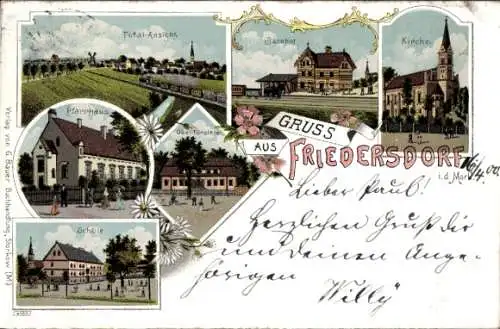 Total-Ansicht.
Bahnhof
Kirche.
Pfarrhaus
Oberförsterei
Schule
GRUSS
AUS
FRIEDERSDORF
i. d. Mark
16/4.00.
Lieber Paul!
Herzlichen Gruß dir
und Deinen Ange-
hörigen
Willy
Verlag von G. Bauer, Buchhandlung, Storkow (M)